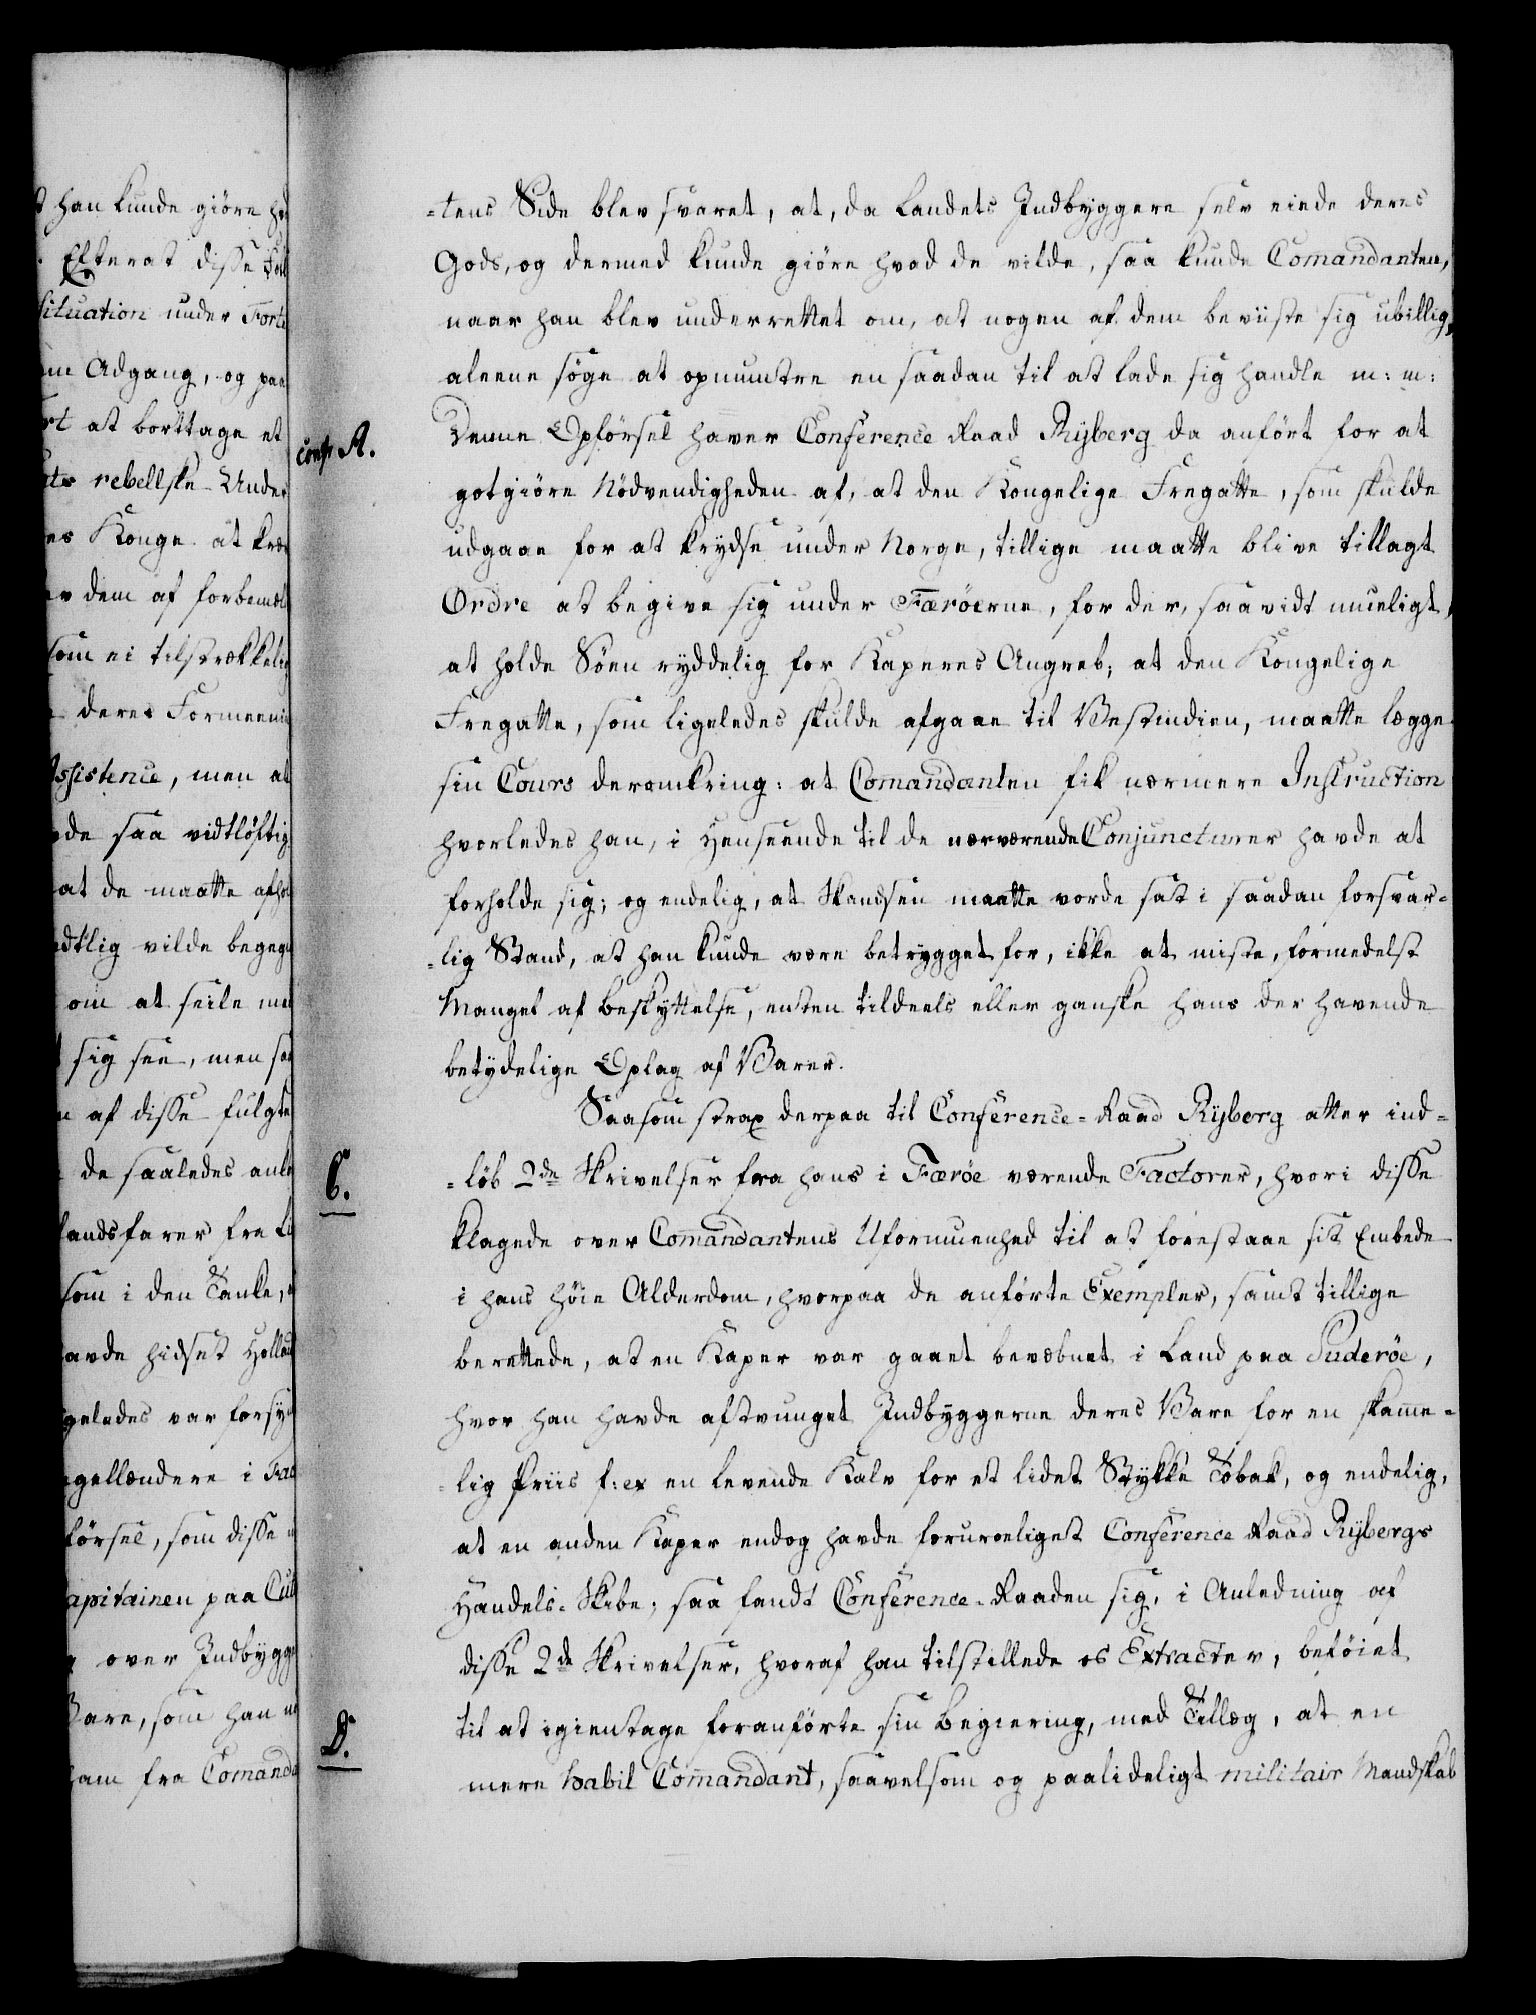 t han kunde giöre
Efterat disse
situation under Fort
Adgang, og paa
at borttage et
rebellske Under
Konge at
dem af forbemel
som ei tilstrækkelig
deres Formeeni
Assistence, men at
de saa vidtløftig
at de maatte afhol
vilde begegn
om at seile
sig see, men
af disse fulgte
de saaledes
landsfarer fra
som i den Tanke,
avde hidset Holla
geledes var forsyn
gellændere i
förser, som disse
apitainen paa
over Indbygge
Vare, som han
ham fra Comanda
-tens Side blev svaret, at, da Landets Indbyggere selv eiede deres
Gods, og dermed kunde giöre hvad de vilde, saa kunde Comandanten,
naar han blev underrettet om, at nogen af dem beviiste sig ubillig,
aleene söge at opmuntre en saadan til at lade sig handle m: m:
conf: A.
Denne Opförsel haver Conference Raad Ryberg da anfört for at
gotgiöre Nödvendigheden af, at den Kongelige Fregatte, som skulde
udgaae for at krydse under Norge, tillige maatte blive tillagt
Ordre at begive sig under Færöerne, for der, saavidt mueligt,
at holde Söen ryddelig for Kaperes Angreb; at den Kongelige
Fregatte, som ligeledes skulde afgaae til Vestindien, maatte lægge
sin Cours deromkring: at Comandanten fik nærmere Instruction
hvorledes han, i Henseende til de nærværende Conjuncturer havde at
forholde sig; og endelig, at Skandsen maatte vorde sat i saadan forsvar-
-lig Stand, at han kunde være betrygget for, ikke at miste, formedelst
Mangel af Beskyttelse, enten tildeels eller ganske hans der havende
betydelige Oplag af Varer.
Saasom strax derpaa til Conference-Raad Ryberg atter ind-
C.
-löb 2de Skrivelser fra hans i Færöe værende Factorer, hvori disse
klagede over Comandantens Uformuenhed til at forestaae sit Embede
i hans höie Alderdom, hvorpaa de anförte Exempler, samt tillige
berettede, at en Kaper var gaaet bevæbnet i Land paa Suderöe,
hvor han havde aftvunget Indbyggerne deres Vare for en skamme-
-lig Priis f: ex en levende Kalv for et lidet Stykke Tobak, og endelig,
at en anden Kaper endog havde foruroeliget Conference Raad Rybergs
Handels-Skibe; saa fandt Conference-Raaden sig, i Anledning af
disse 2de Skrivelser, hvoraf han tilstillede os Extracter, beföiet
D.
til at igientage foranförte sin Begiering, med Tillæg, at en
mere habil Comandant, saavelsom og paalideligt militair Mandskab